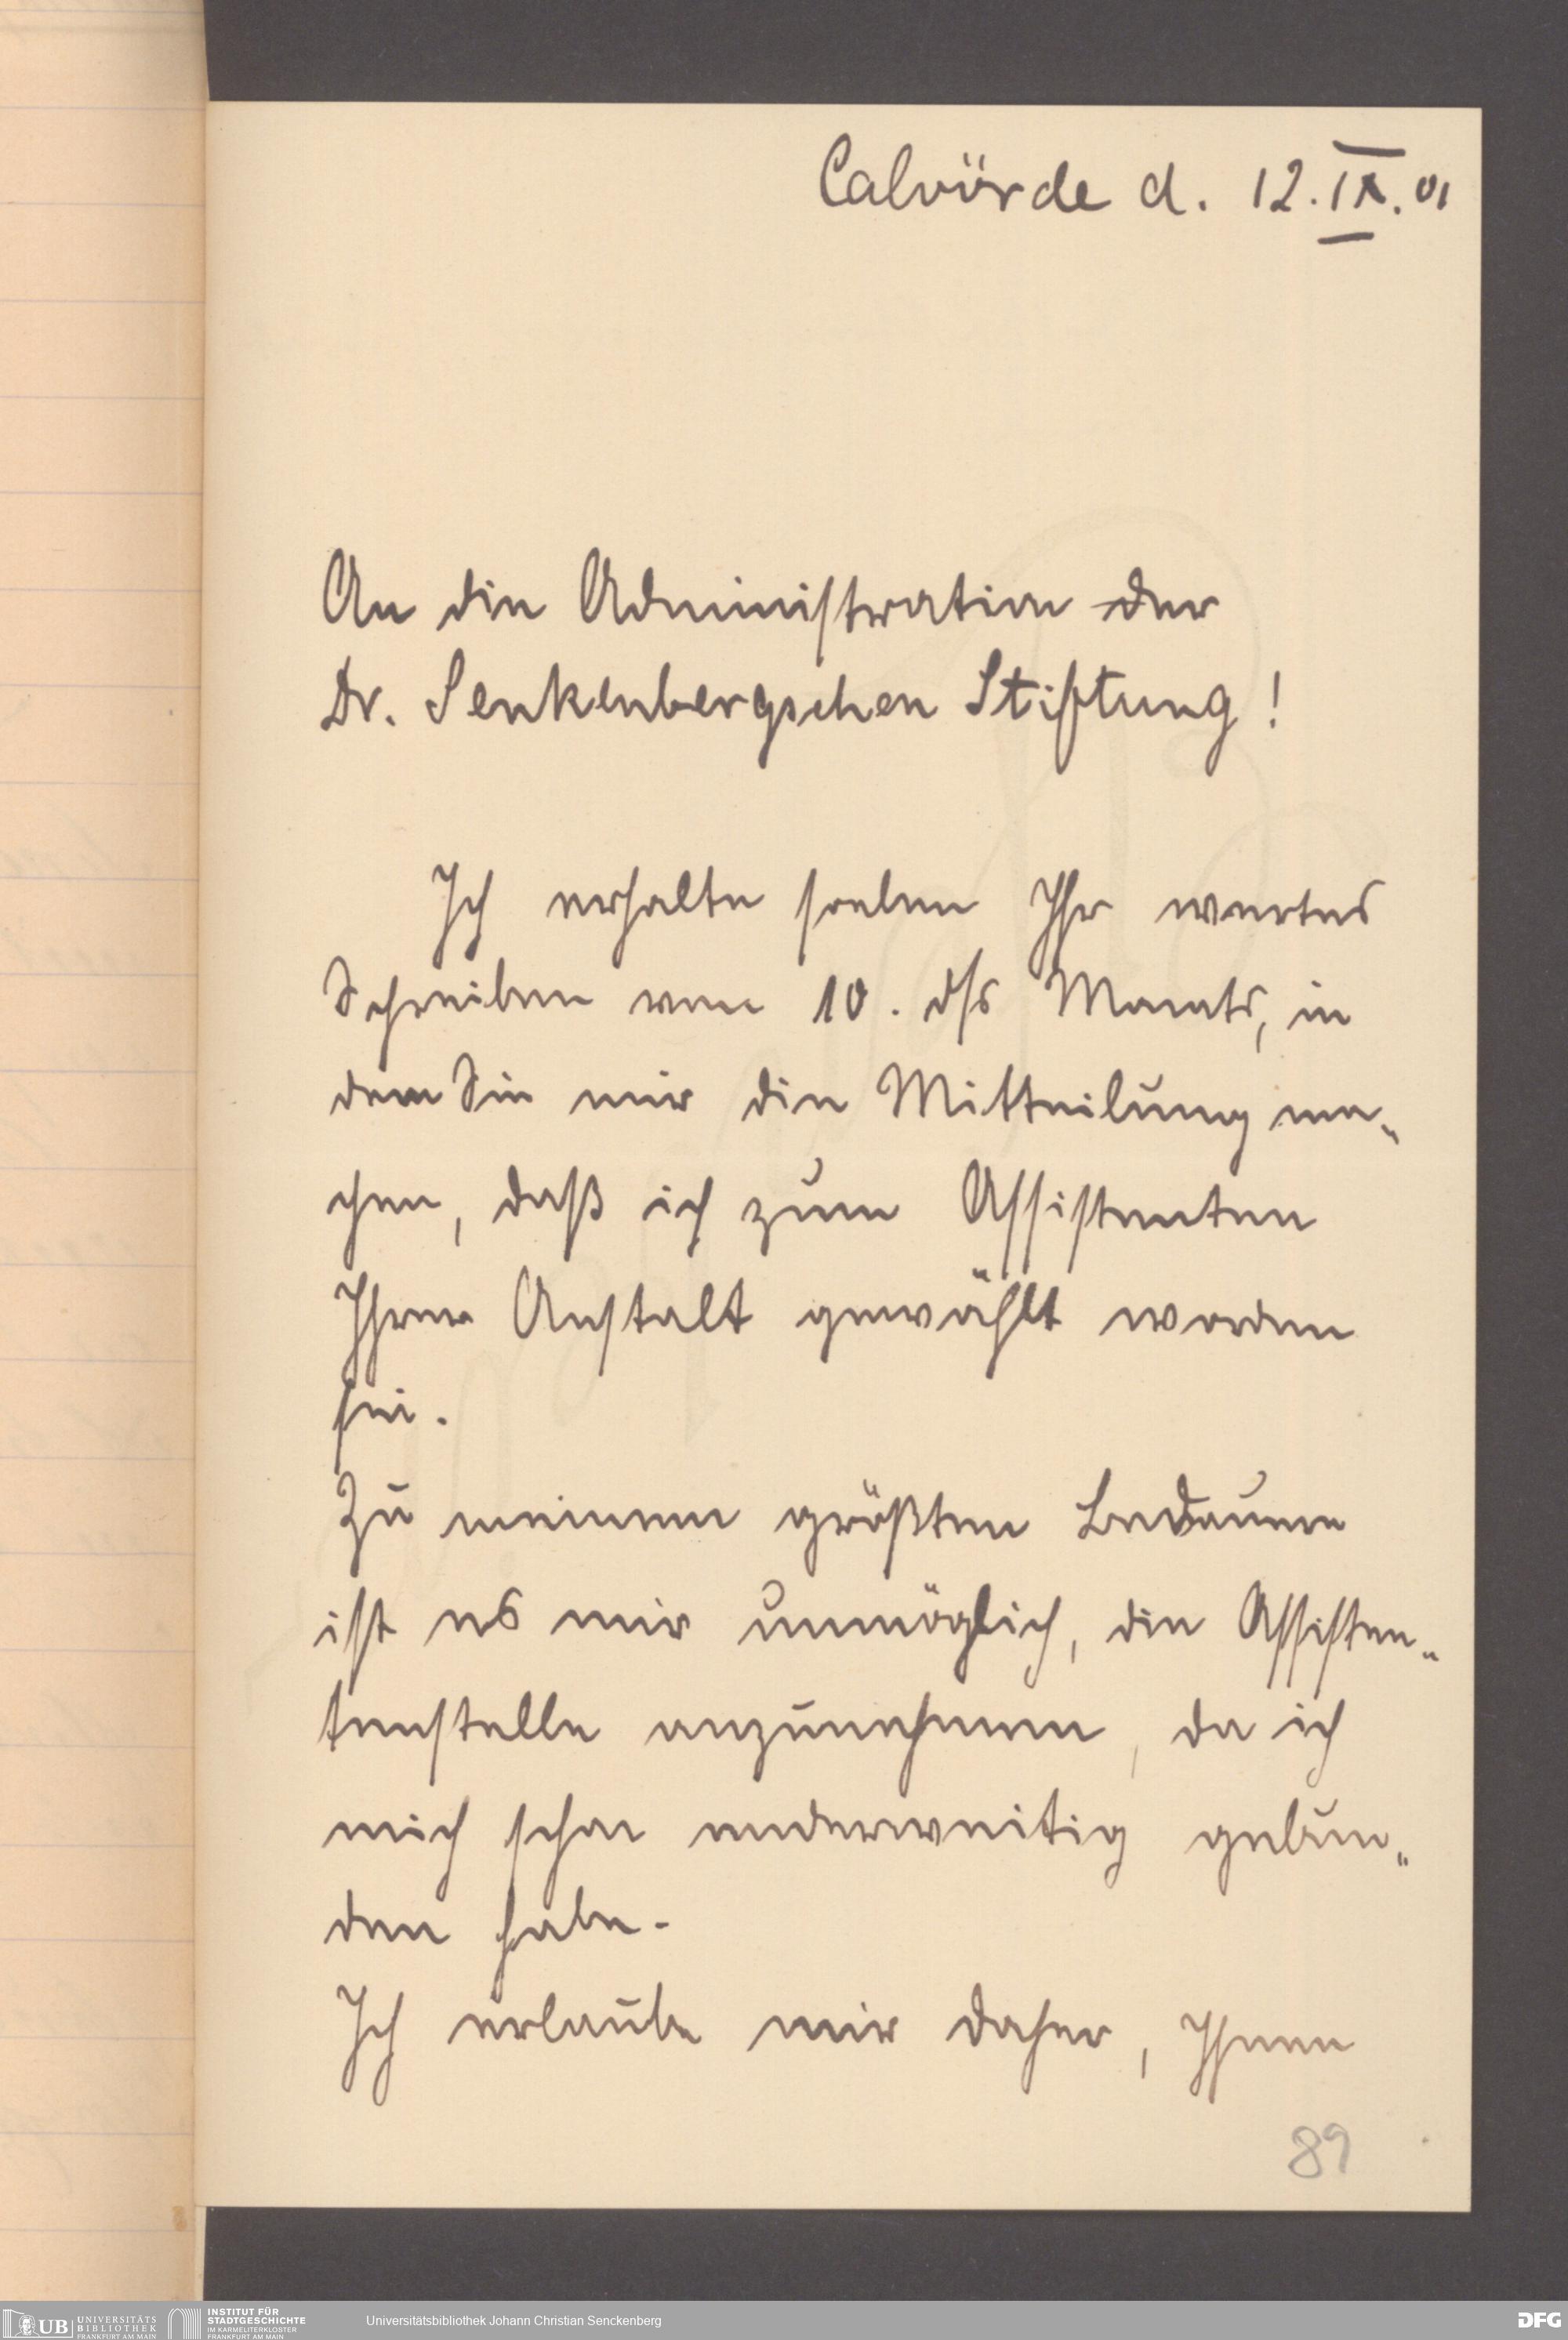 Calvörde d. 12.IX.01
An die Administration der
Dr. Senkenbergschen Stiftung!
Ich erhalte soeben Ihr wertes
Schreiben vom 10. dss Monats, in
dem Sie mir die Mitteilung ma„
chen, daß ich zum Assistenten
Ihrer Anstalt gewählt worden
sei.
Zu meinem größten Bedauern
ist es mir unmöglich, die Assisten„
tenstelle anzunehmen, da ich
mich schon anderweitig gebun„
den habe.
Ich erlaube mir daher, Ihnen
89
UB UNIVERSITÄTS
BIBLIOTHEK
FRANKFURT AM MAIN
INSTITUT FÜR
STADTGESCHICHTE
IM KARMELITERKLOSTER
FRANKFURT AM MAIN
Universitätsbibliothek Johann Christian Senckenberg
DFG